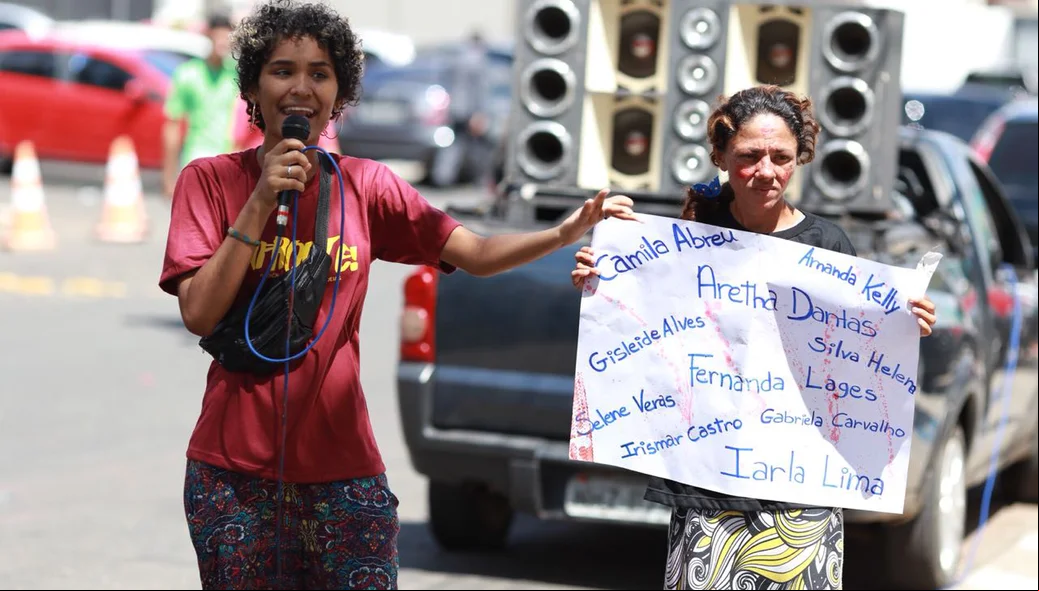 Camila Abreu
Amanda Kelly
Aretha Dantas
Gisleide Alves
Silva Helena
Fernanda Lages
Selene Veras
Gabriela Carvalho
Irismar Castro
Iarla Lima